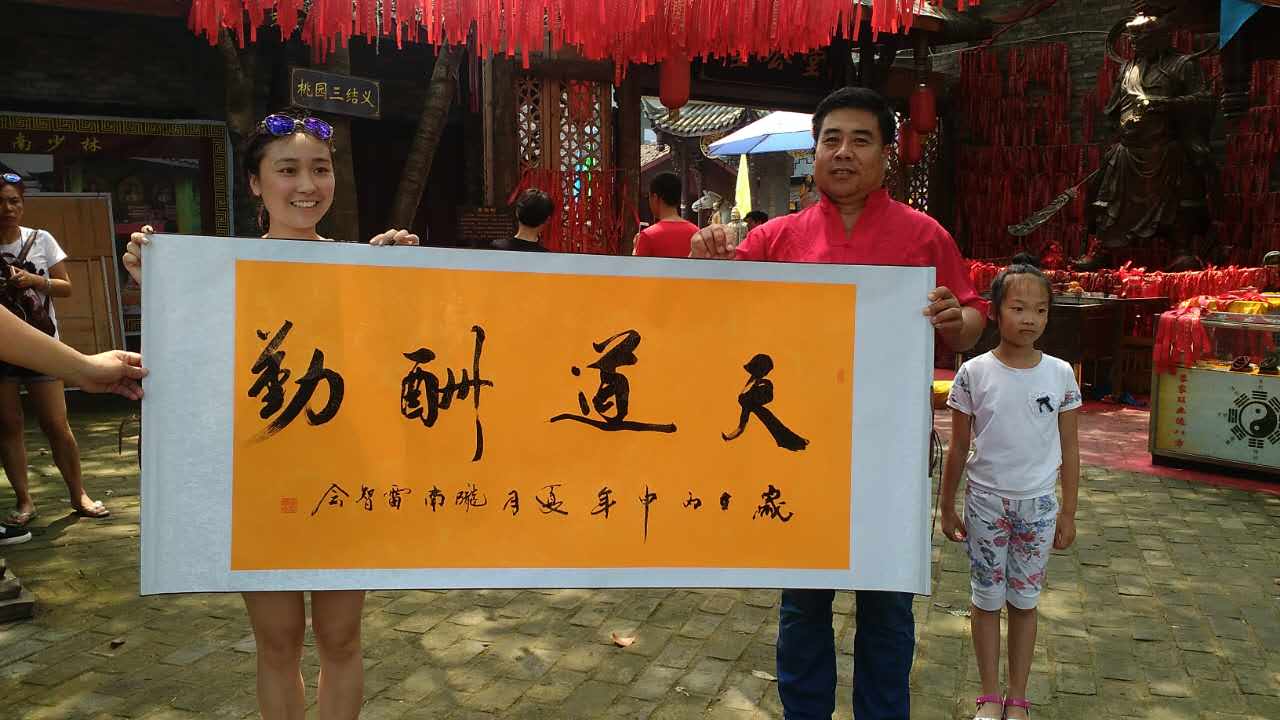 桃园三结义
南少林
天道酬勤
歲在丙申年夏月隴南雷智会